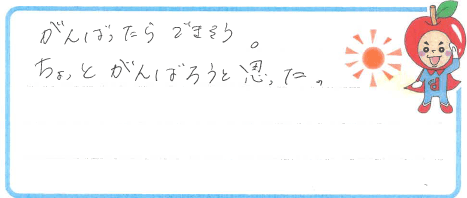 がんばったらできそう。
ちょっとがんばろうと思った。